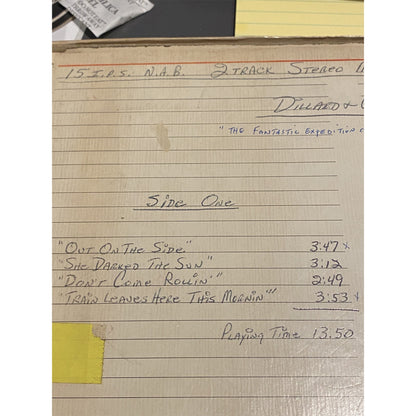 SILICA
GEL
"DO NOT EAT"
THROW AWAY
15 I.P.S. N.A.B. 2 TRACK STEREO
DILLARD &
"THE FANTASTIC EXPEDITION
SIDE ONE
"OUT ON THE SIDE" 3:47 x
"SHE DARKED THE SUN" 3:12
"DON'T COME ROLLIN'" 2:49
"TRAIN LEAVES HERE THIS MORNIN'" 3:53 x
PLAYING TIME 13.50